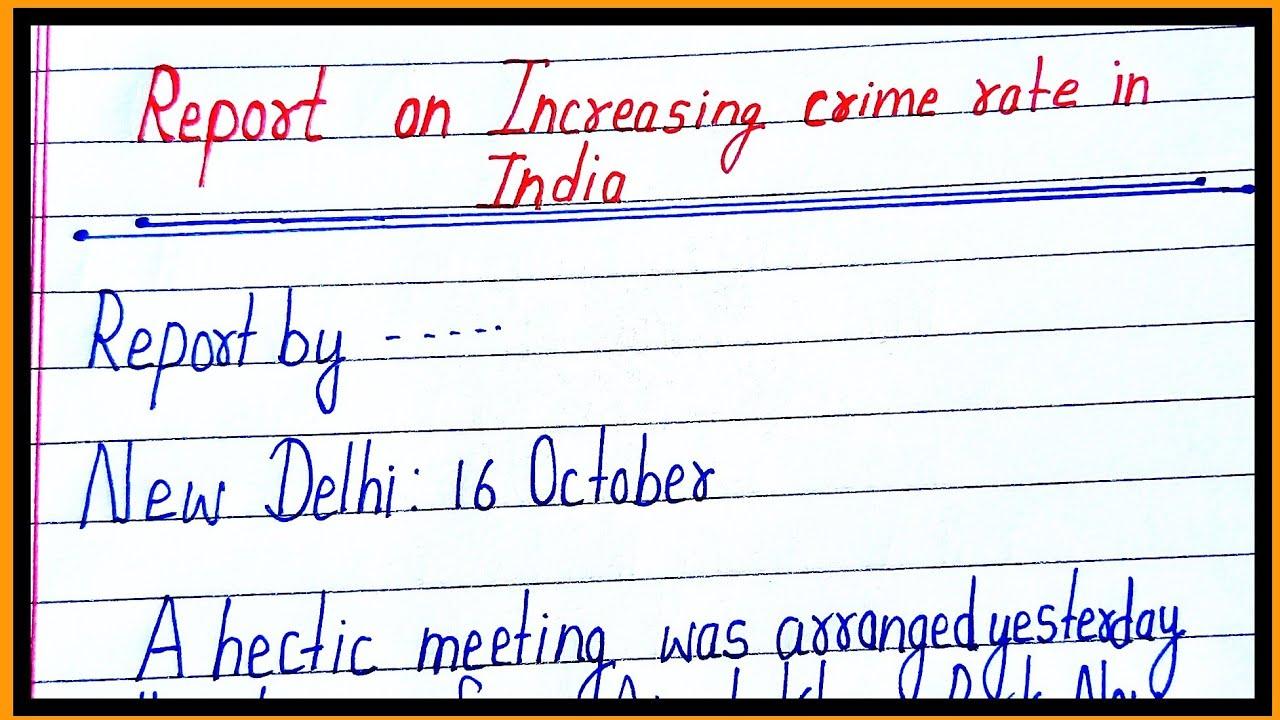 Report on Increasing crime rate in
India
Report by -----
New Delhi: 16 October
A hectic meeting was arranged yesterday